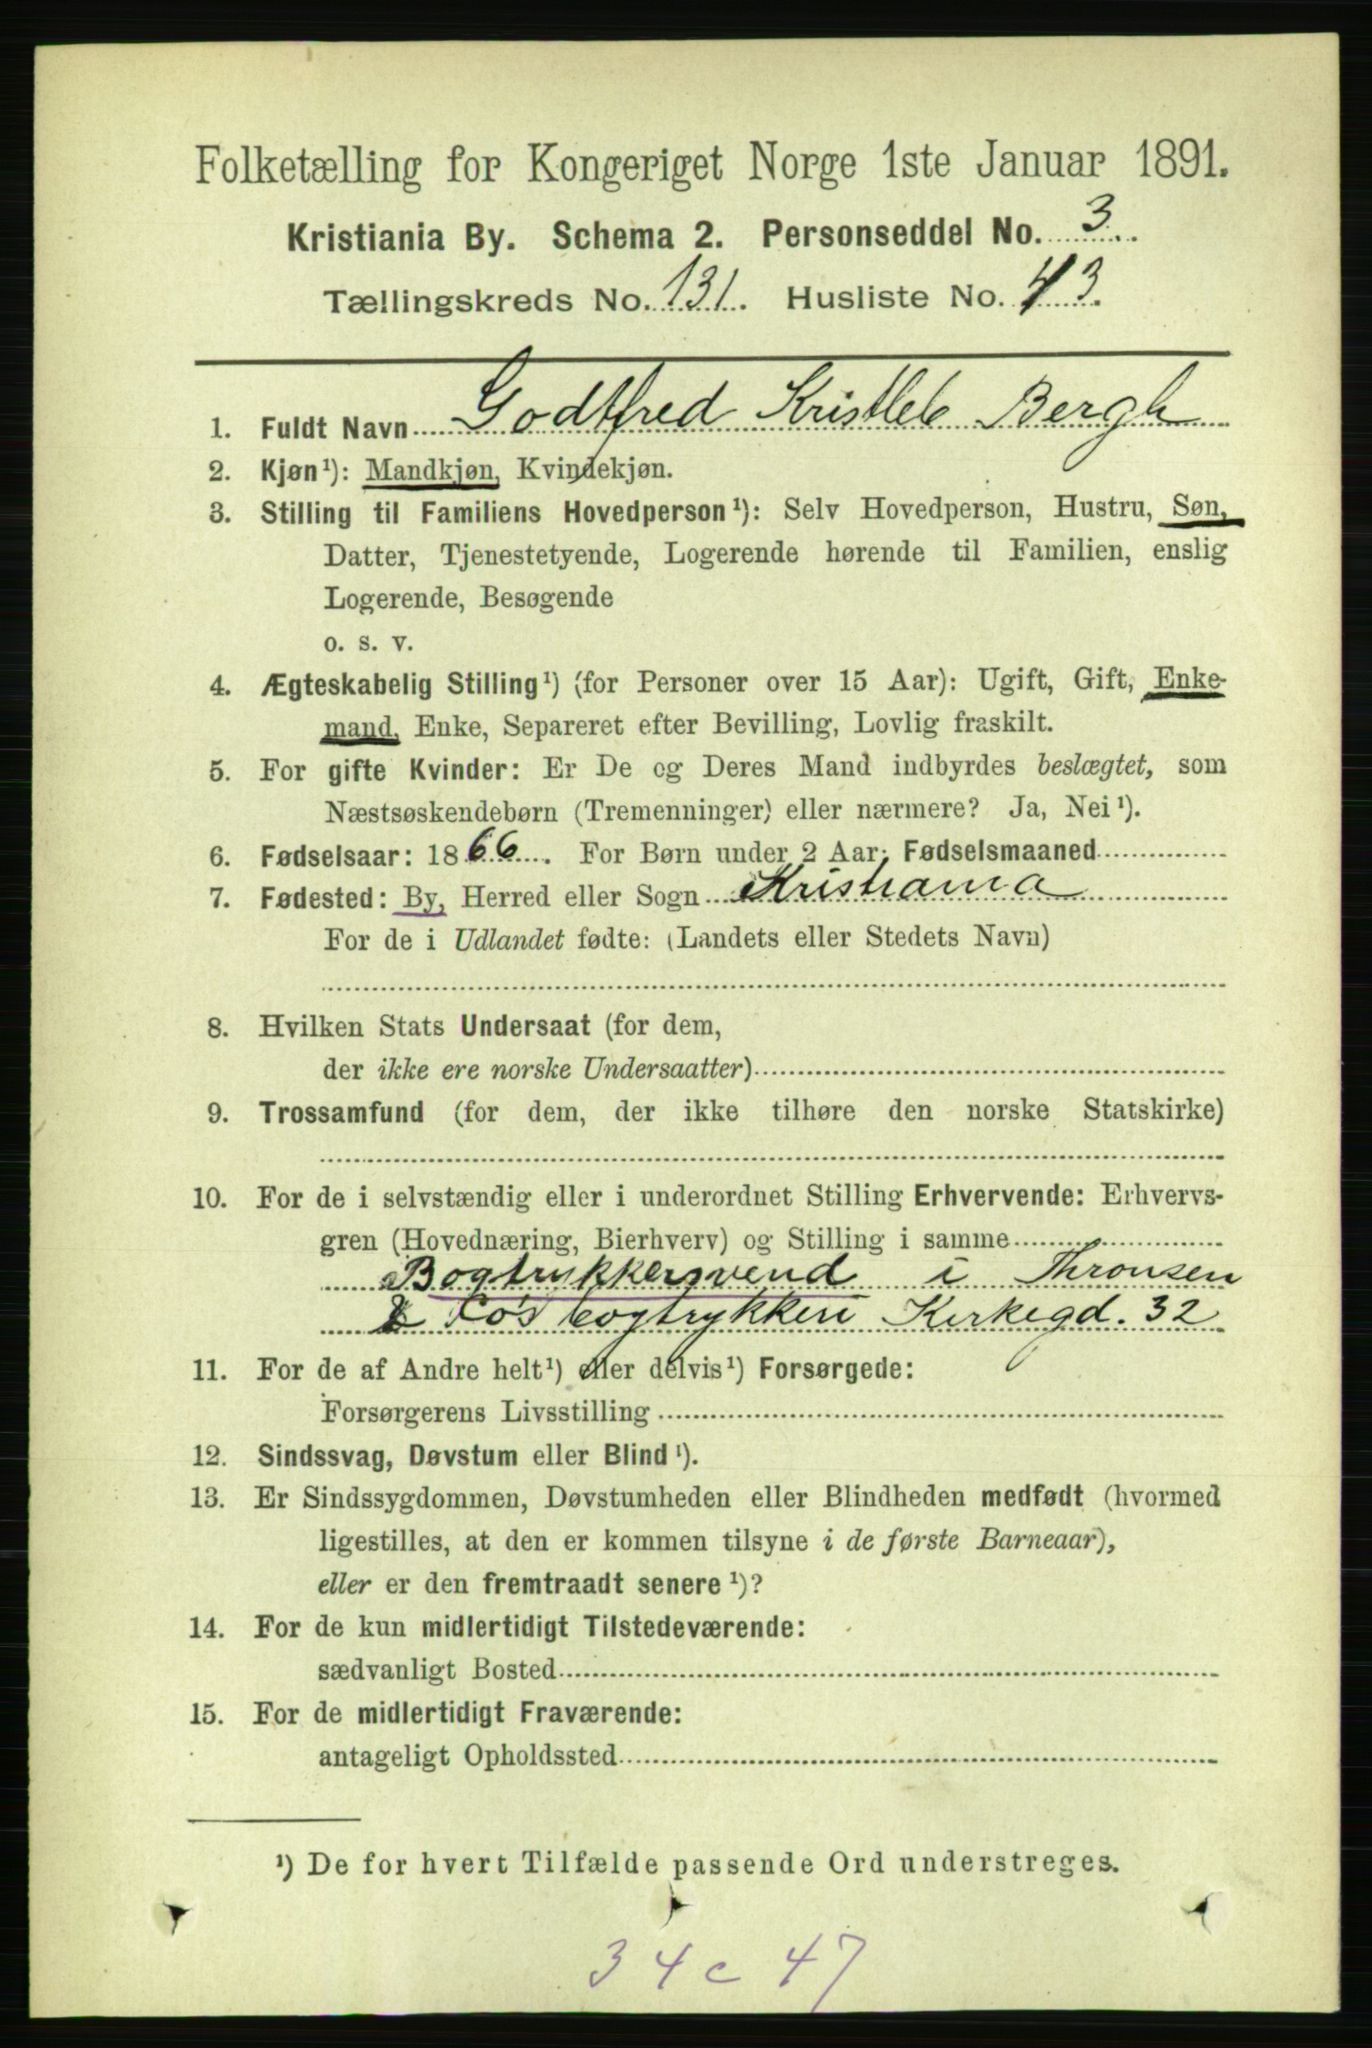 Folketælling for Kongeriget Norge 1ste Januar 1891.
Kristiania By. Schema 2. Personseddel No. 3
Tællingskreds No. 131. Husliste No. 43.
1. Fuldt Navn Godtfred Kristleb Bergh
2. Kjøn¹): Mandkjøn, Kvindekjøn.
3. Stilling til Familiens Hovedperson¹): Selv Hovedperson, Hustru, Søn,
Datter, Tjenestetyende, Logerende hørende til Familien, enslig
Logerende, Besøgende
o. s. v.
4. Ægteskabelig Stilling¹) (for Personer over 15 Aar): Ugift, Gift, Enke-
mand, Enke, Separeret efter Bevilling, Lovlig fraskilt.
5. For gifte Kvinder: Er De og Deres Mand indbyrdes beslægtet, som
Næstsøskendebørn (Tremenninger) eller nærmere? Ja, Nei¹).
6. Fødselsaar: 1866. For Børn under 2 Aar: Fødselsmaaned
7. Fødested: By, Herred eller Sogn Kristiania
For de i Udlandet fødte: (Landets eller Stedets Navn)
8. Hvilken Stats Undersaat (for dem,
der ikke ere norske Undersaatter)
9. Trossamfund (for dem, der ikke tilhøre den norske Statskirke)
10. For de i selvstændig eller i underordnet Stilling Erhvervende: Erhvervs-
gren (Hovednæring, Bierhverv) og Stilling i samme
Bogtrykkersvend i Thronsen
& Co's bogtrykkeri Kirkegd. 32
11. For de af Andre helt¹) eller delvis¹) Forsørgede:
Forsørgerens Livsstilling
12. Sindssvag, Døvstum eller Blind¹).
13. Er Sindssygdommen, Døvstumheden eller Blindheden medfødt (hvormed
ligestilles, at den er kommen tilsyne i de første Barneaar),
eller er den fremtraadt senere¹)?
14. For de kun midlertidigt Tilstedeværende:
sædvanligt Bosted
15. For de midlertidigt Fraværende:
antageligt Opholdssted
¹) De for hvert Tilfælde passende Ord understreges.
34c47